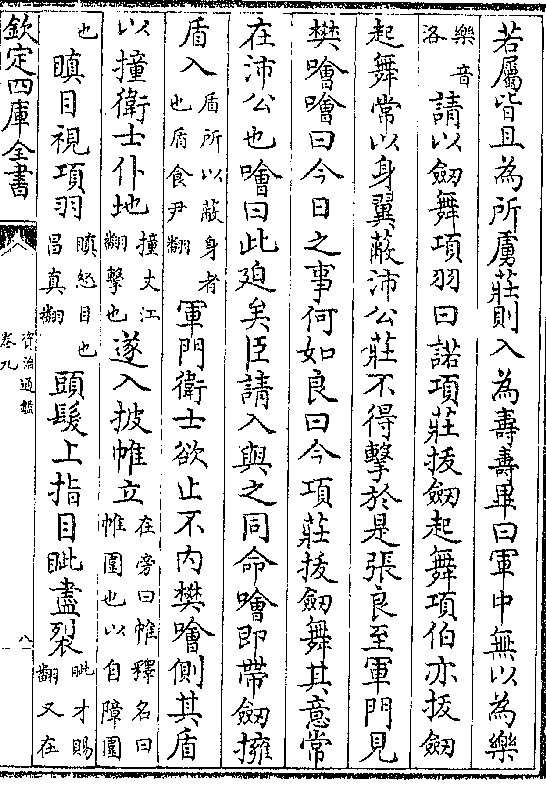 若屬皆且為所虜莊則入為壽壽畢曰軍中無以為樂
樂音洛請以劔舞項羽曰諾項莊拔劔起舞項伯亦拔劔
起舞常以身翼蔽沛公莊不得擊於是張良至軍門見
樊噲噲曰今日之事何如良曰今項莊拔劔舞其意常
在沛公也噲曰此廹矣臣請入與之同命噲即帶劔擁
盾入盾所以蔽身者也盾食尹翻軍門衛士欲止不内樊噲側其盾
以撞衛士仆地撞丈江翻擊也遂入披帷立在旁曰帷釋名曰帷圍也以自障圍
也瞋目視項羽瞋怒目也昌真翻頭髮上指目眦盡裂眦才賜翻又在
欽定四庫全書
資治通鑑
卷九
八